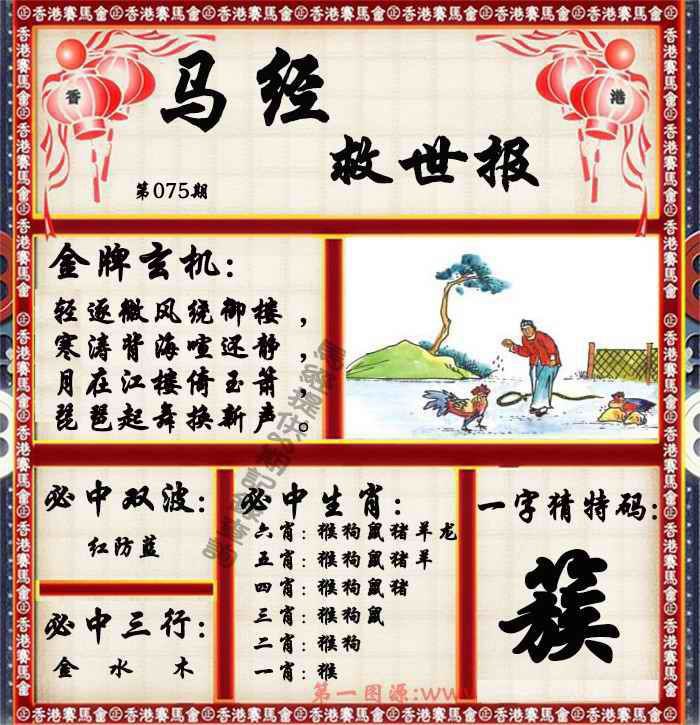 香港賽馬會
香
港
马经
救世报
第075期
金牌玄机：
轻逐微风绕御楼，
寒涛背海喧还静，
月在江楼倚玉箫，
琵琶起舞换新声。
必中双波：
红防蓝
必中三行：
金 水 木
必中生肖：
六肖：猴狗鼠猪羊龙
五肖：猴狗鼠猪羊
四肖：猴狗鼠猪
三肖：猴狗鼠
二肖：猴狗
一肖：猴
一字猜特码：
簇
第一图源：ww